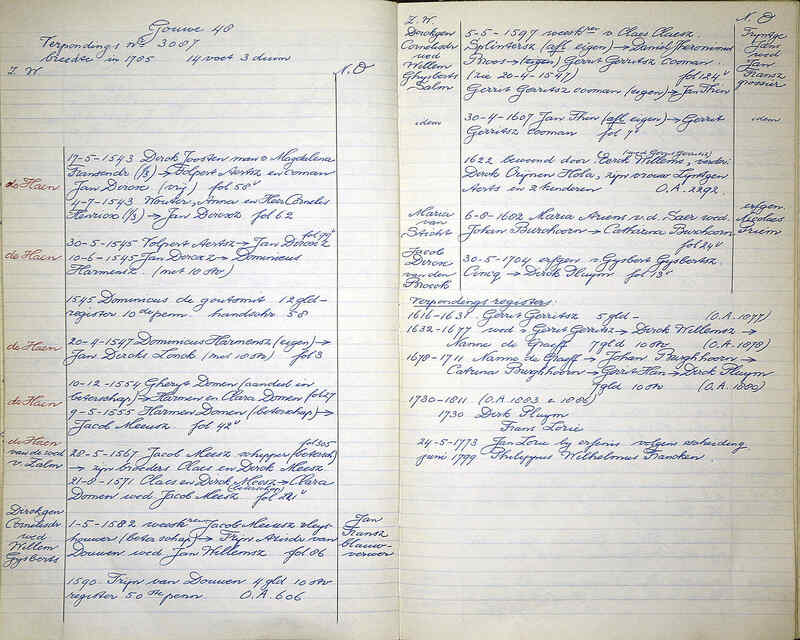 Gouwe 48
Verpondings no 3087
breedte in 1705 14 voet 3 duim
Z. W. N. O
17-5-1543 Dirck Joosten man v Magdalena
Fransendr (1/3) → Volpert Aertsz en coman
de Haen Jan Dircxz (vrij) fol 58v
4-7-1543 Wouter, Anna en Heer Cornelis
Henricx (1/3) → Jan Dircxsz fol 62
fol 94v
30-5-1545 Volpert Aertsz → Jan Dircxsz
de Haen 10-6-1545 Jan Dircxz → Dominicus
Harmensz. (met 10 str)
1545 Dominicus de goutsmit 12 gld-
register 10de penn. handschr 58
20-4-1547 Dominicus Harmensz (eigen) →
de Haen Jan Dircks Lonck (met 10 str) fol 3
10-12-1554 Gheryt Domen (aandeel in
de Haen beterschap) → Harmen en Clara Domen fol 27
9-5-1555 Harmen Domen (beterschap) →
Jacob Meeusz fol 42v
de Haen fol 305
van de wed 28-5-1567 Jacob Meesz schipper (betersch)
v. Zalm → zijn broeders Claes en Dirck Meesz
21-8-1571 Claes en Dirck Meesz → Clara
(beterschap)
Domen wed Jacob Meesz fol 221v
Dirckgen
Cornelisdr 1-5-1582 weeskren Jacob Meeusz vleys- Jan
wed houwer (beterschap) → Trijn Ariaens van Fransz
Willem Douwen wed Jan Willemsz fol 86 blauw-
Gysberts verwer
1590 Trijn van Douwen 4 gld 10 str
register 50ste penn. O.A. 606
Z. W. N. O
Dirckgen 5-5-1597 weeskren v Claes Cluesz. Tryntge
Cornelisdr Splintersz (afl eigen) → Daniel Jheronimus Jans
wed Proos → (eigen) Gerrit Gerritsz Cooman. wed
Willem (zie 20-4-1547) fol 124v Jan
Ghysberts Gerrit Gerritsz cooman (eigen) → Jan Thin Fransz
Salm grossier
idem 30-4-1607 Jan Thin (afl eigen) → Gerrit idem
Gerritsz Cooman fol 7v
(wed Gerrit Gerritsz)
1622 bewoond door Eerck Willems, verder
Dirck Crijnen Hola, zijn vrouw Lijntgen
Aerts en 2 kinderen O.A. 2292.
Maria 6-8-1682 Maria Ariens v.d. Saer wed. erfgen.
van Johan Burchoorn → Catharina Burchoorn Nicolaes
Sticht fol 24v Pruim
Jacob
Dircx 30-5-1704 erfgen v Gysbert Gysbertsz.
van den Cincq → Dirck Pluym fol 13v
Broeck
Verpondings registers:
1616-1631 Gerrit Gerritsz 5 gld - (O.A. 1077)
1632-1677 wed v Gerrit Gerritsz → Dirck Willemsz →
Nanne de Graeff 7 gld 10 str (O.A. 1078)
1678-1711 Nanne de Graeff → Johan Burghhoorn →
Catrina Burghhoorn → Gerrit Han → Dirck Pluym
7 gld 10 str (O.A. 1080)
1730-1811 (O.A. 1083 e 1088)
1730 Dirk Pluym
Frans Lorie
24-5-1773 Jan Lorie by erfenis volgens scheiding
juni 1799 Philippus Wilhelmus Francken.